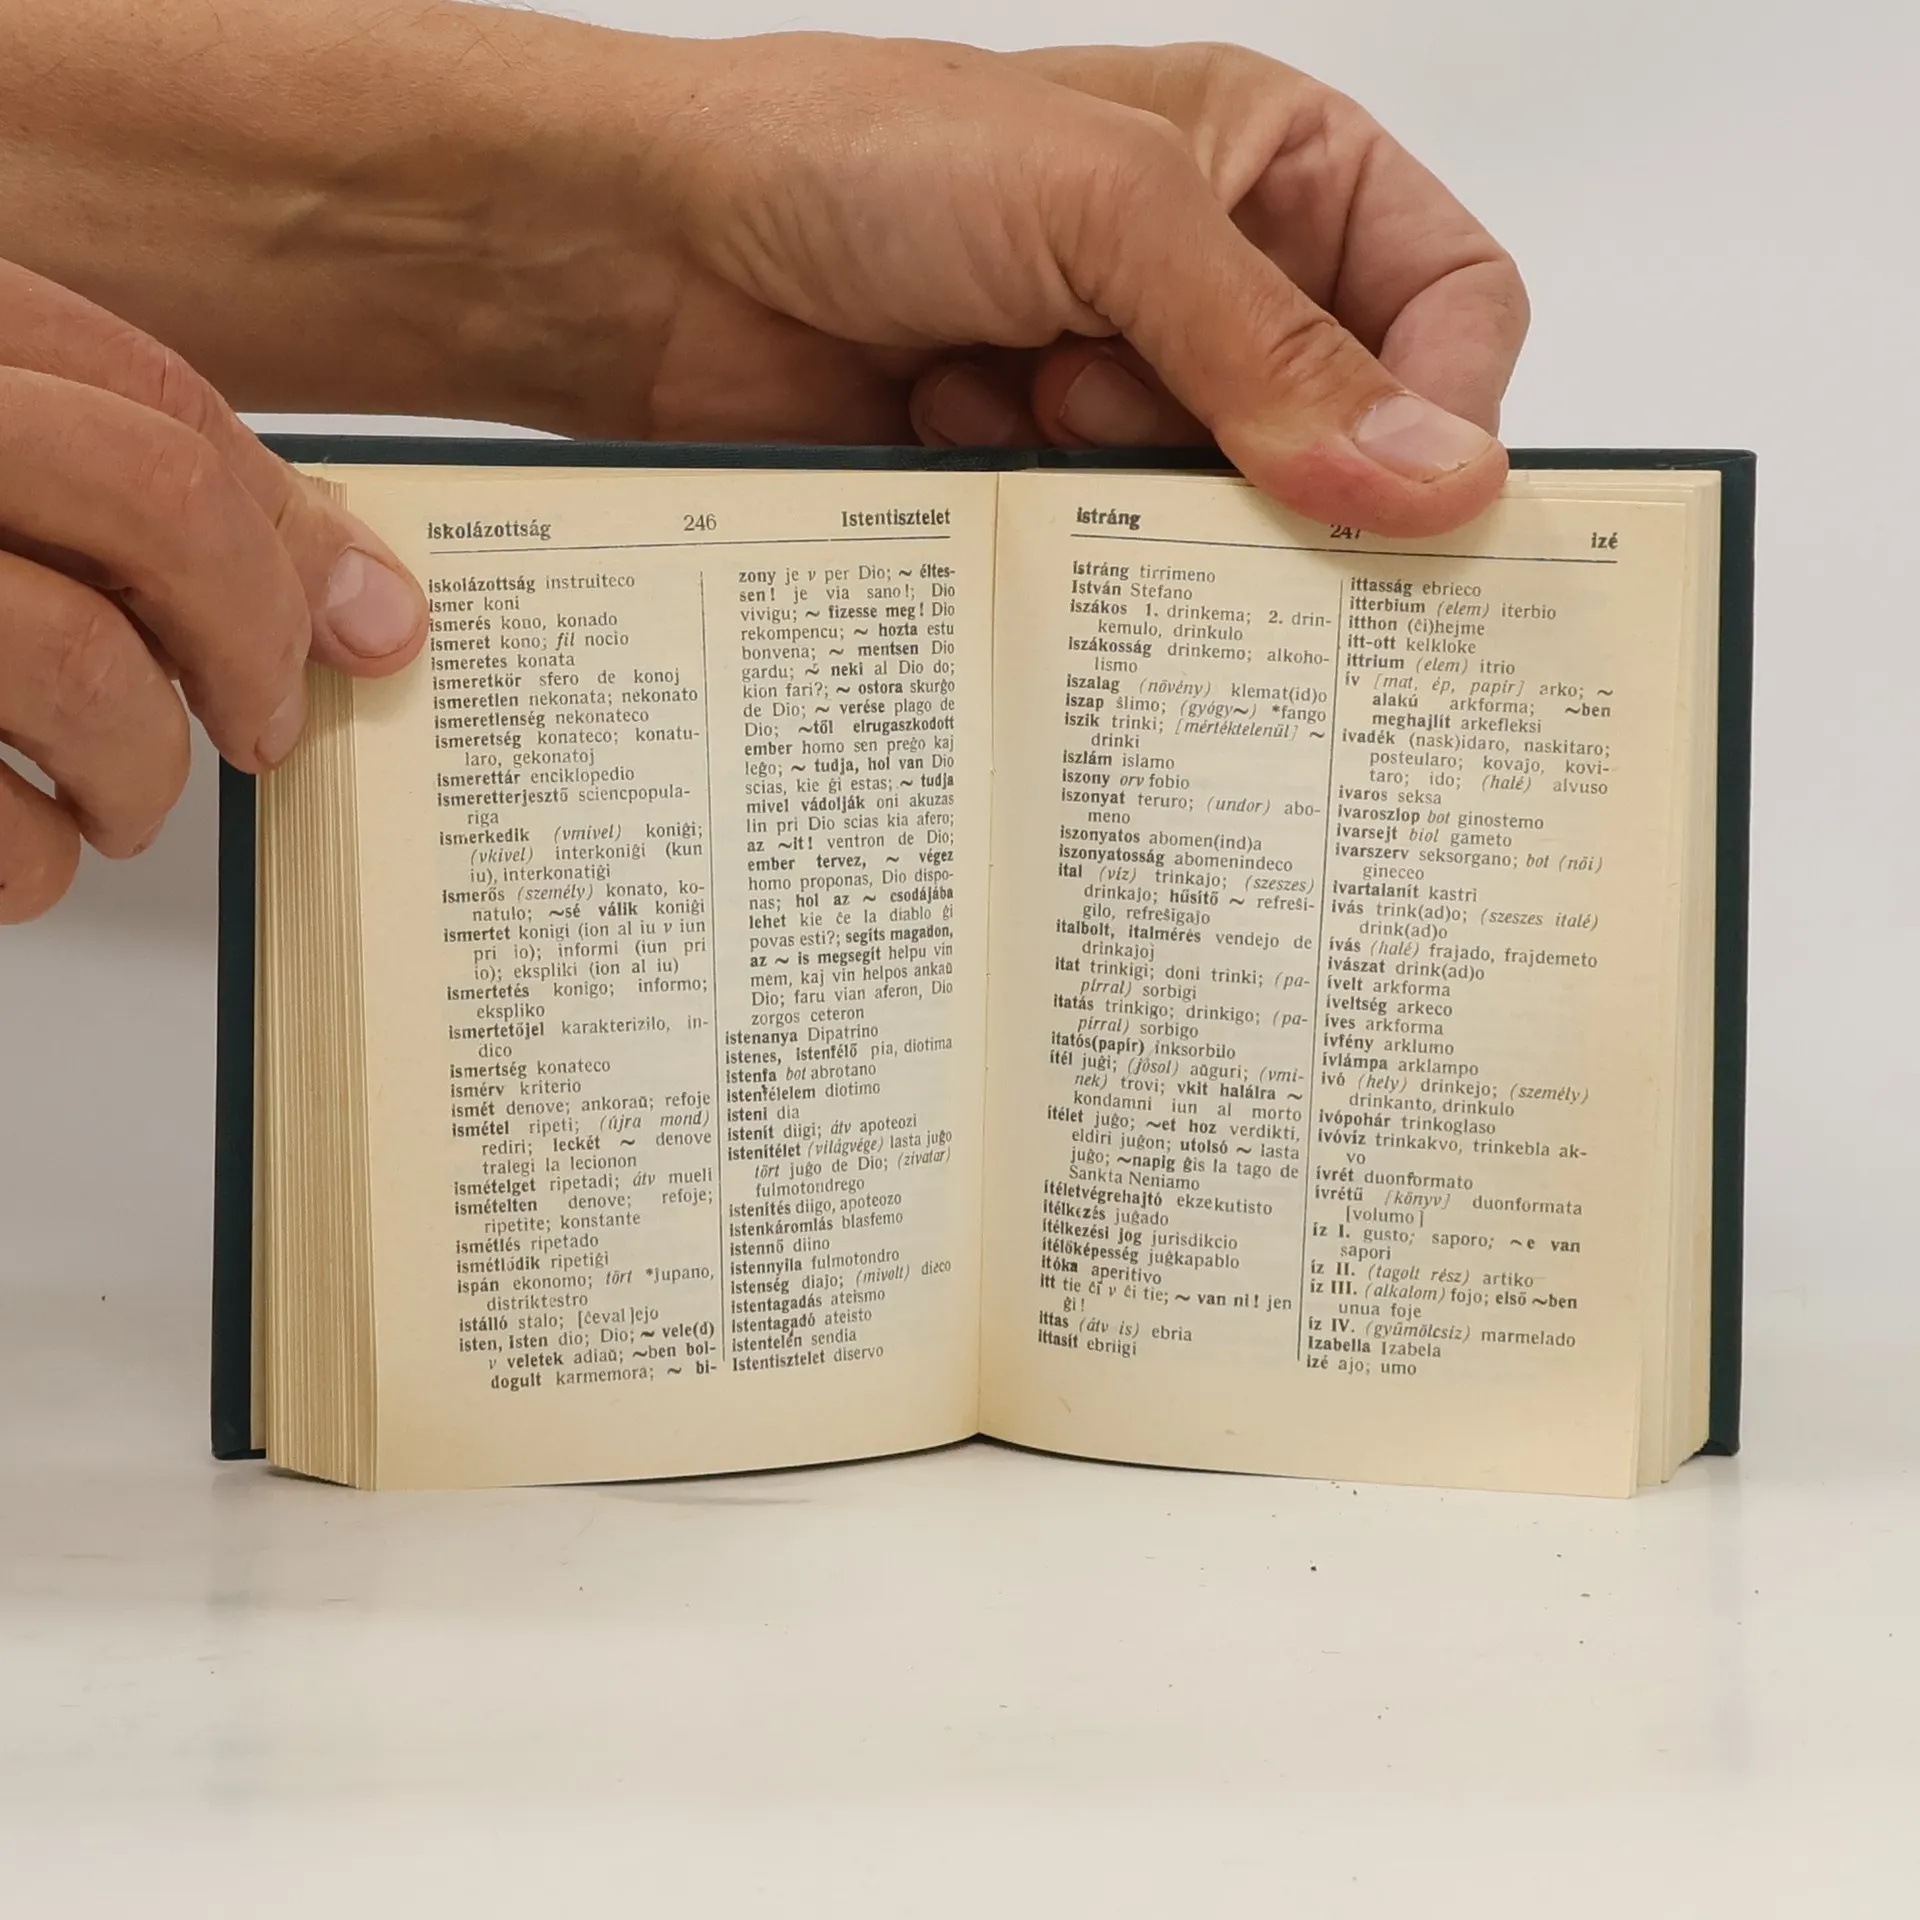 iskolázottság 246 Istentisztelet
iskolázottság instruiteco
ismer koni
ismerés kono, konado
ismeret kono; fil nocio
ismeretes konata
ismeretkör sfero de konoj
ismeretlen nekonata; nekonato
ismeretlenség nekonateco
ismeretség konateco; konatu-
laro, gekonatoj
ismerettár enciklopedio
ismeretterjesztő sciencpopula-
riga
ismerkedik (vmivel) koniĝi;
(vkivel) interkoniĝi (kun
iu), interkonatiĝi
ismerős (személy) konato, ko-
natulo; ~sé válik koniĝi
ismertet konigi (ion al iu v iun
pri io); informi (iun pri
io); ekspliki (ion al iu)
ismertetés konigo; informo;
ekspliko
ismertetőjel karakterizilo, in-
dico
ismertség konateco
ismérv kriterio
ismét denove; ankoraŭ; refoje
ismétel ripeti; (újra mond)
rediri; leckét ~ denove
tralegi la lecionon
ismételget ripetadi; átv mueli
ismételten denove; refoje;
ripetite; konstante
ismétlés ripetado
ismétlődik ripetiĝi
ispán ekonomo; tört *jupano,
distriktestro
istálló stalo; [ĉeval]ejo
isten, Isten dio; Dio; ~ vele(d)
v veletek adiaŭ; ~ben bol-
dogult karmemora; ~ bi-
zony je v per Dio; ~ éltes-
sen! je via sano!; Dio
vivigu; ~ fizesse meg! Dio
rekompencu; ~ hozta estu
bonvena; ~ mentsen Dio
gardu; ~ neki al Dio do;
kion fari?; ~ ostora skurĝo
de Dio; ~ verése plago de
Dio; ~től elrugaszkodott
ember homo sen preĝo kaj
leĝo; ~ tudja, hol van Dio
scias, kie ĝi estas; ~ tudja
mivel vádolják oni akuzas
lin pri Dio scias kia afero;
az ~it! ventron de Dio;
ember tervez, ~ végez
homo proponas, Dio dispo-
nas; hol az ~ csodájába
lehet kie ĉe la diablo ĝi
povas esti?; segíts magadon,
az ~ is megsegít helpu vin
mem, kaj vin helpos ankaŭ
Dio; faru vian aferon, Dio
zorgos ceteron
istenanya Dipatrino
istenes, istenfélő pia, diotima
istenfa bot abrotano
istenfélelem diotimo
isteni dia
istenít diigi; átv apoteozi
istenítélet (világvége) lasta juĝo
tört juĝo de Dio; (zivatar)
fulmotondrego
istenítés diigo, apoteozo
istenkáromlás blasfemo
istennő diino
istennyila fulmotondro
istenség diajo; (mivolt) dieco
istentagadás ateismo
istentagadó ateisto
istentelen sendia
Istentisztelet diservo
istráng 247 izé
istráng tirrimeno
István Stefano
iszákos 1. drinkema; 2. drin-
kemulo, drinkulo
iszákosság drinkemo; alkoho-
lismo
iszalag (növény) klemat(id)o
iszap ŝlimo; (gyógy~) *fango
iszik trinki; [mértéktelenül] ~
drinki
iszlám islamo
iszony orv fobio
iszonyat teruro; (undor) abo-
meno
iszonyatos abomen(ind)a
iszonyatosság abomenindeco
ital (víz) trinkajo; (szeszes)
drinkajo; hűsítő ~ refreŝi-
gilo, refreŝigajo
italbolt, italmérés vendejo de
drinkajoj
itat trinkigi; doni trinki; (pa-
pírral) sorbigi
itatás trinkigo; drinkigo; (pa-
pírral) sorbigo
itatós(papír) inksorbilo
ítél juĝi; (jósol) aŭguri; (vmi-
nek) trovi; vkit halálra ~
kondamni iun al morto
ítélet juĝo; ~et hoz verdikti,
eldiri juĝon; utolsó ~ lasta
juĝo; ~napig ĝis la tago de
Sankta Neniamo
ítéletvégrehajtó ekzekutisto
ítélkezés juĝado
ítélkezési jog jurisdikcio
ítélőképesség juĝkapablo
itóka aperitivo
itt tie ĉi v ĉi tie; ~ van ni! jen
ĝi!
ittas (átv is) ebria
ittasít ebriigi
ittasság ebrieco
itterbium (elem) iterbio
itthon (ĉi)hejme
itt-ott kelkloke
ittrium (elem) itrio
ív [mat, ép, papír] arko; ~
alakú arkforma; ~ben
meghajlít arkefleksi
ivadék (nask)idaro, naskitaro;
posteularo; kovajo, kovi-
taro; ido; (halé) alvuso
ivaros seksa
ivaroszlop bot ginostemo
ivarsejt biol gameto
ivarszerv seksorgano; bot (női)
gineceo
ivartalanít kastri
ivás trink(ad)o; (szeszes italé)
drink(ad)o
ívás (halé) frajado, frajdemeto
ivászat drink(ad)o
ívelt arkforma
íveltség arkeco
íves arkforma
ívfény arklumo
ívlámpa arklampo
ivó (hely) drinkejo; (személy)
drinkanto, drinkulo
ivópohár trinkoglaso
ivóvíz trinkakvo, trinkebla ak-
vo
ívrét duonformato
ívrétű [könyv] duonformata
[volumo]
íz I. gusto; saporo; ~e van
sapori
íz II. (tagolt rész) artiko
íz III. (alkalom) fojo; első ~ben
unua foje
íz IV. (gyümölcsíz) marmelado
Izabella Izabela
izé ajo; umo